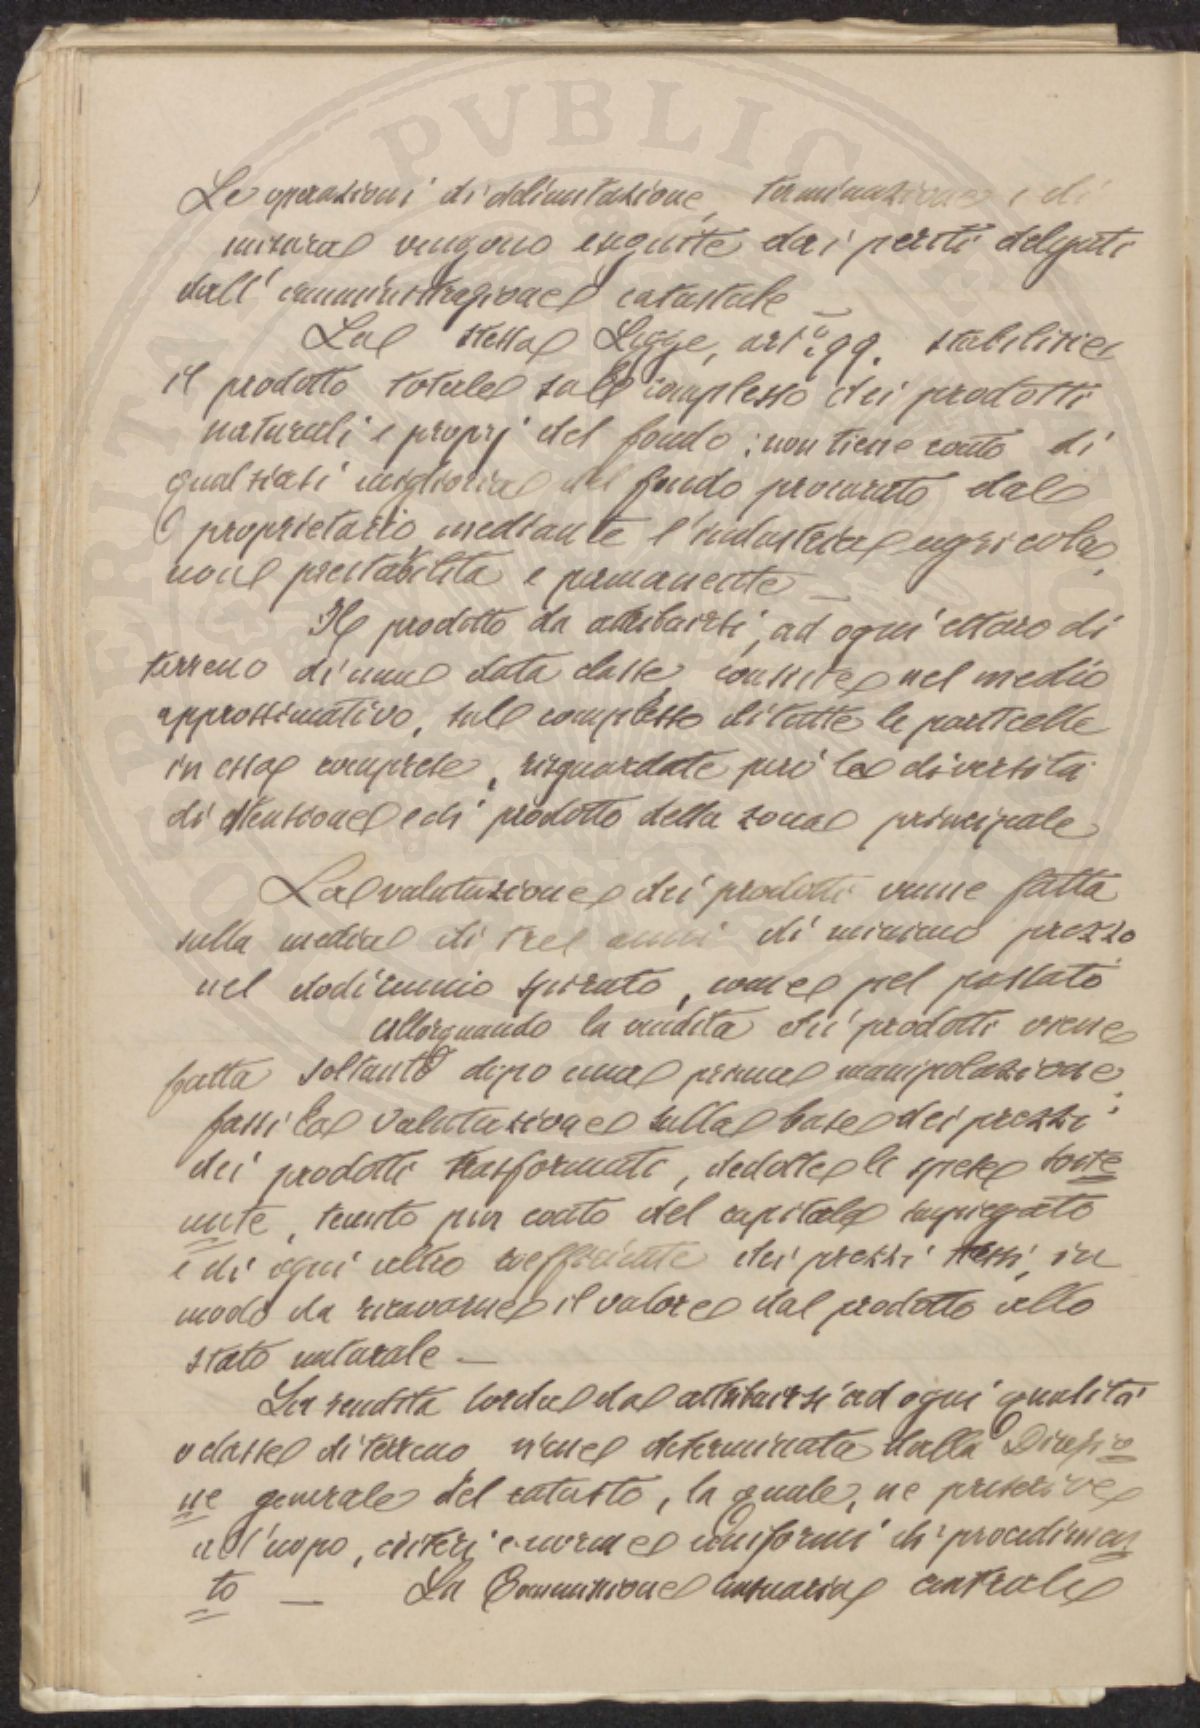 Le operazioni di delimitazione, terminazione e di
misura vengono eseguite dai periti delegati
dall'amministrazione catastale —
La stessa Legge, art.º 99. stabilisce
il prodotto totale sul complesso dei prodotti
naturali e proprj del fondo; non tiene conto di
qualsiasi miglioria del fondo procurato dal
proprietario mediante l'industria agricola,
non prestabilita e permanente —
Il prodotto da attribuirsi, ad ogni ettaro di
terreno di una data classe consiste nel medio
approssimativo, sul complesso di tutte le particelle
in essa comprese, risguardate però la diversità
di stensione e di prodotto della zona principale
La valutazione dei prodotti venne fatta
sulla media di tre anni di minimo prezzo
nel dodicennio spirato, come pel passato
Allorquando la vendita dei prodotti viene
fatta soltanto dopo una prima manipolazione,
fassi la valutazione sulla base dei prezzi
dei prodotti trasformati, dedotte le spese soste
nute, tenuto pur conto del capitale impiegato
e di ogni altro coefficiente dei prezzi stessi, in
modo da ricavarne il valore dal prodotto allo
stato naturale —
La rendita lorda da attribuirsi ad ogni qualità
o classe di terreno viene determinata dalla Direzio
ne generale del catasto, la quale, ne prescrive
all'uopo, criteri e norme uniformi di procedimen
to — La Commissione censuaria centrale